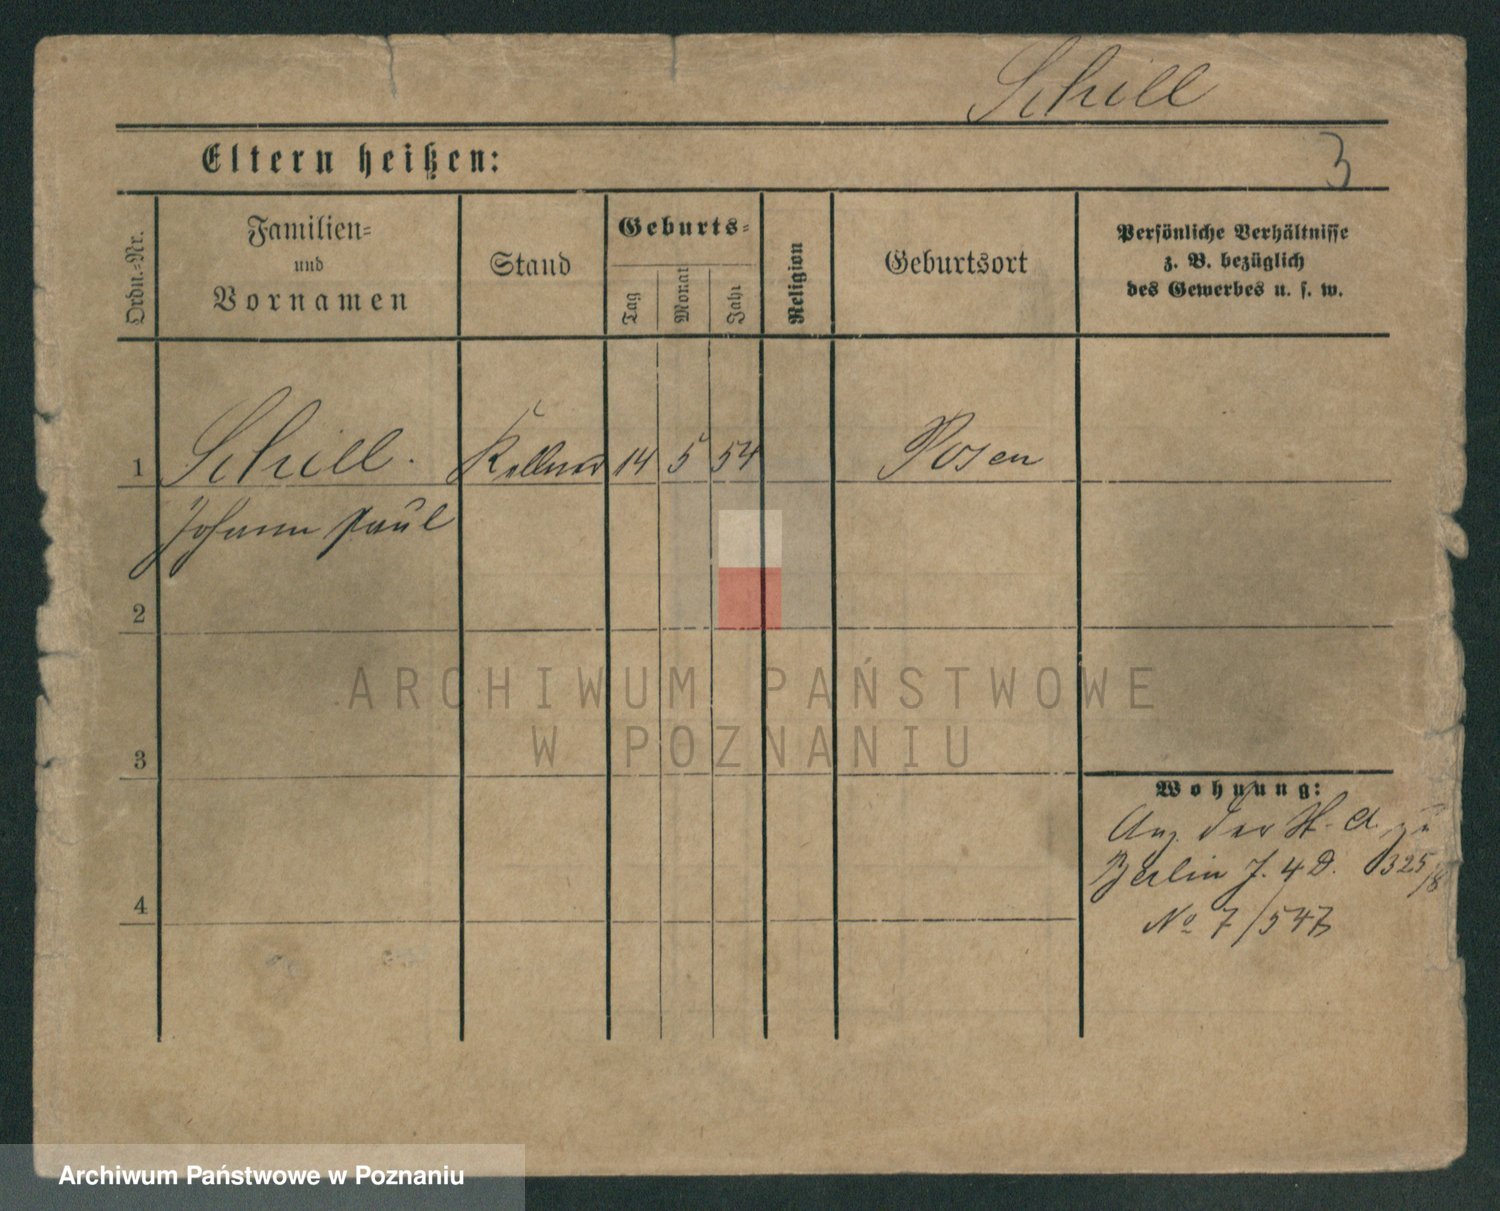 Schill
Eltern heißen:
3
Ordn.-Nr.
Familien-
und
Vornamen
Stand
Geburts-
Tag
Monat
Jahr
Religion
Geburtsort
Persönliche Verhältnisse
z. B. bezüglich
des Gewerbes u. s. w.
1 Schill. Kellner 14 5 54 Posen
Johann Paul
2
ARCHIWUM PAŃSTWOWE
W POZNANIU
3
Wohnung:
der zu
Berlin J. 4 D. 325/8
4
No 7/547
Archiwum Państwowe w Poznaniu